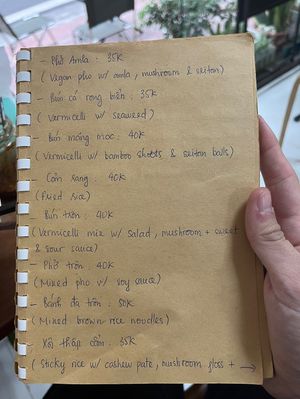 - Phở Amla : 35K
( Vegan pho w/ amla, mushroom & seitan)
- Bún cá rong biển : 35K
( Vermicelli w/ seaweed)
- Bún măng mọc : 40K
(Vermicelli w/ bamboo shoots & seitan balls)
- Cơm rang : 40K
(Fried rice)
- Bún trộn : 40K
(Vermicelli mix w/ salad, mushroom + sweet
& sour sauce)
- Phở trộn : 40K
(Mixed pho w/ soy sauce)
- Bánh đa trộn : 50K
(Mixed brown rice noodles)
- Xôi thập cẩm : 35K
( Sticky rice w/ cashew pate, mushroom floss + →